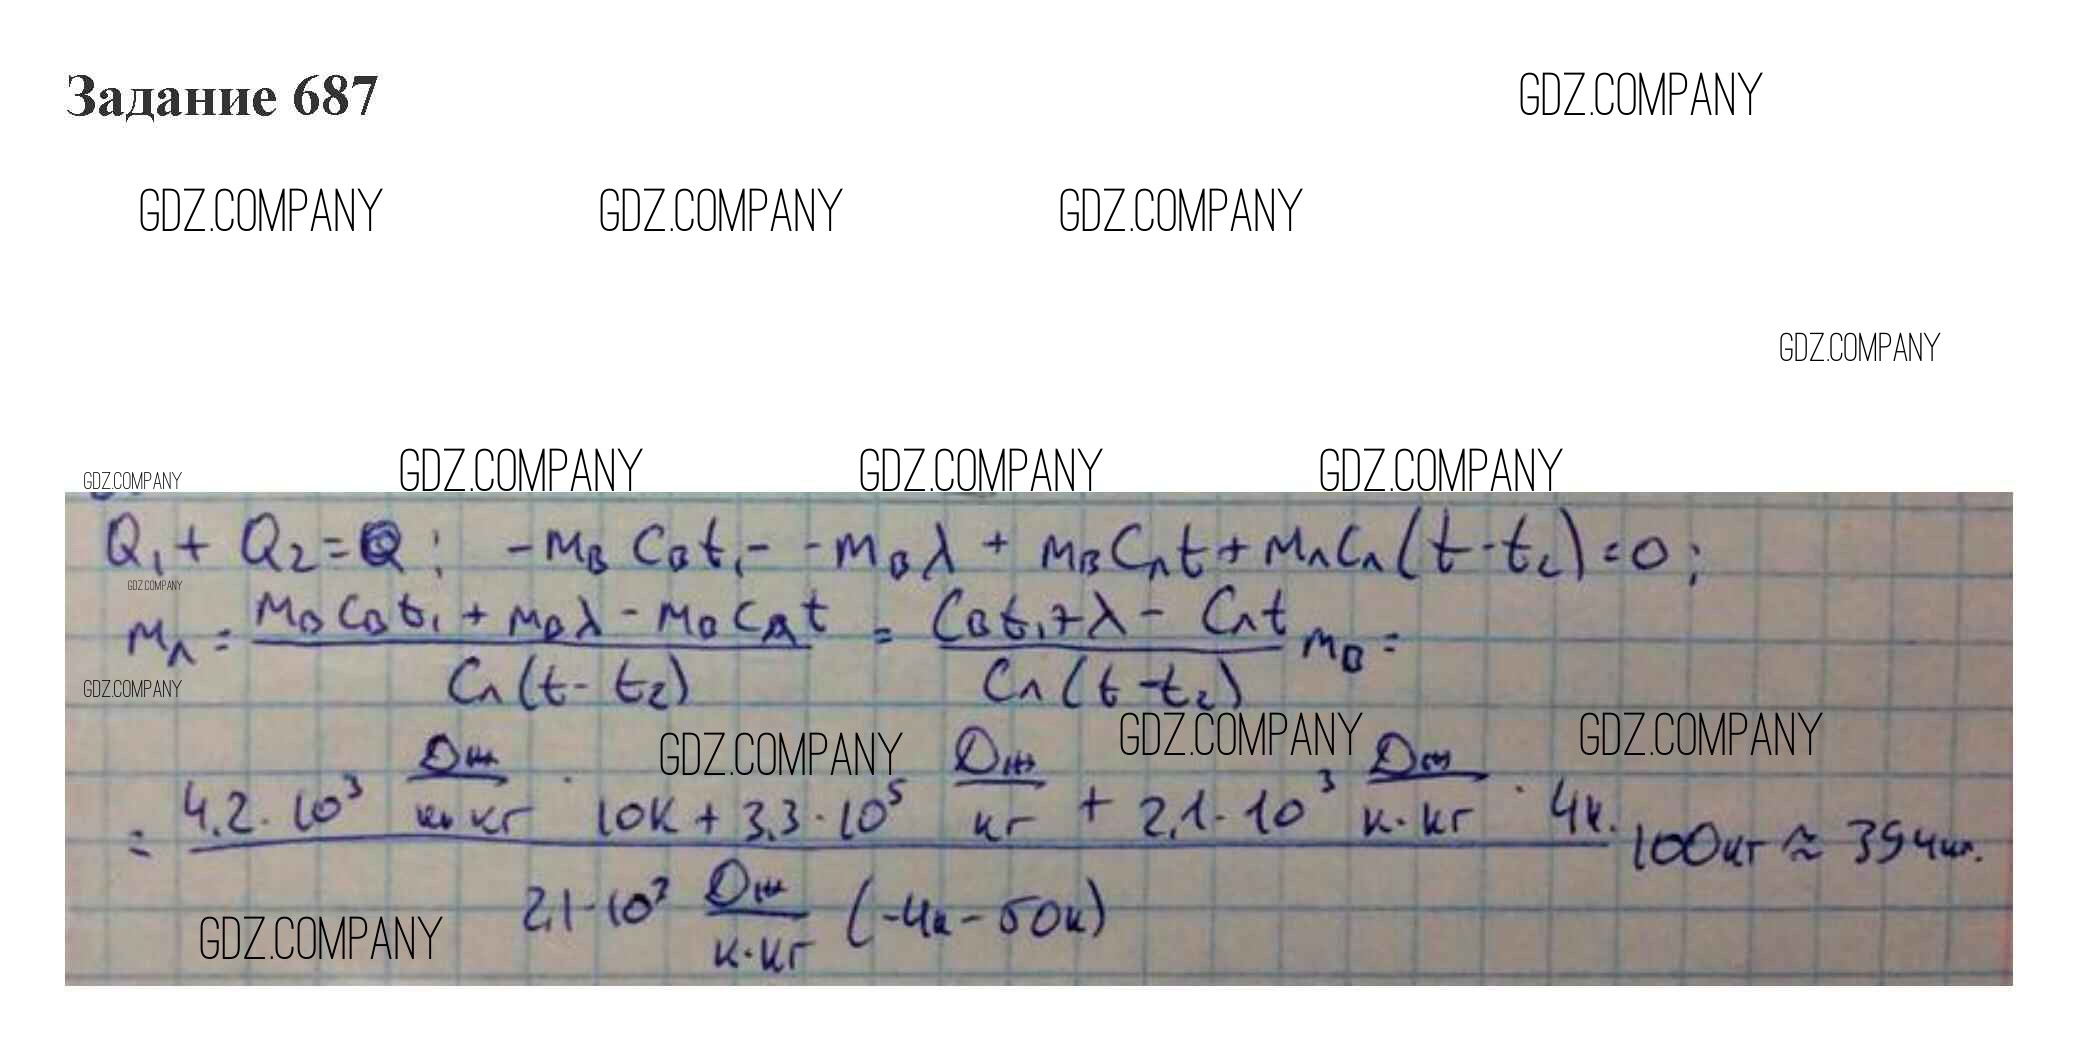 Задание 687 GDZ.COMPANY
GDZ.COMPANY GDZ.COMPANY GDZ.COMPANY
GDZ.COMPANY
GDZ.COMPANY GDZ.COMPANY GDZ.COMPANY GDZ.COMPANY
Q₁ + Q₂ = Q; -mвCвt₁ - -mвλ + mвCлt + mлCл(t - t₂) = 0;
GDZ.COMPANY
mл = (mвCвt₁ + mвλ - mвCлt) / (Cл(t - t₂)) = (Cвt₁ + λ - Cлt) / (Cл(t - t₂)) mв =
GDZ.COMPANY
GDZ.COMPANY GDZ.COMPANY GDZ.COMPANY
= (4,2 · 10³ Дж/(К·кг) · 10К + 3,3 · 10⁵ Дж/кг + 2,1 · 10³ Дж/(К·кг) · 4К) / (2,1 · 10³ Дж/(К·кг) (-4К - 50К)) 100кг ≈ 394кг.
GDZ.COMPANY